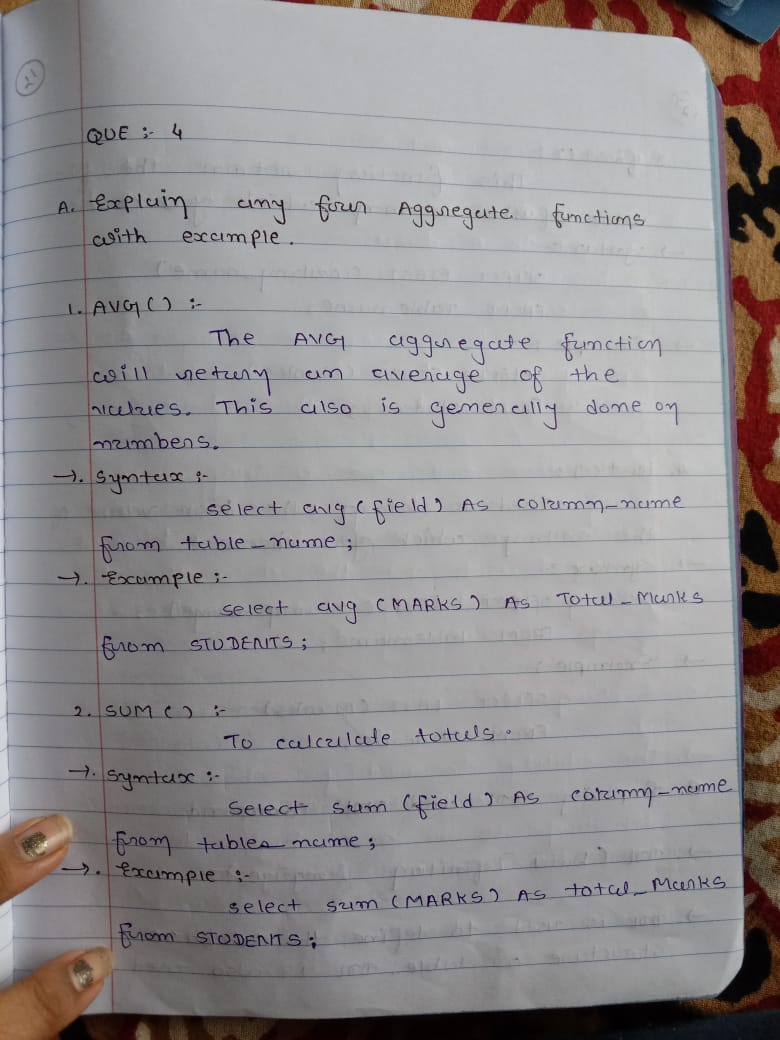 21
QUE :- 4
A. Explain any four Aggregate functions
with example.
1. AVG() :-
The AVG aggregate function
will return an average of the
values. This also is generally done on
numbers.
→. Syntax :-
select avg (field) As column_name
from table_name;
→. Example :-
select avg (MARKS) As Total_Marks
from STUDENTS;
2. SUM() :-
To calculate totals.
→. Syntax :-
Select sum (field) As column_name
from tables name;
→. Example :-
select sum (MARKS) As total_Marks
from STUDENTS;